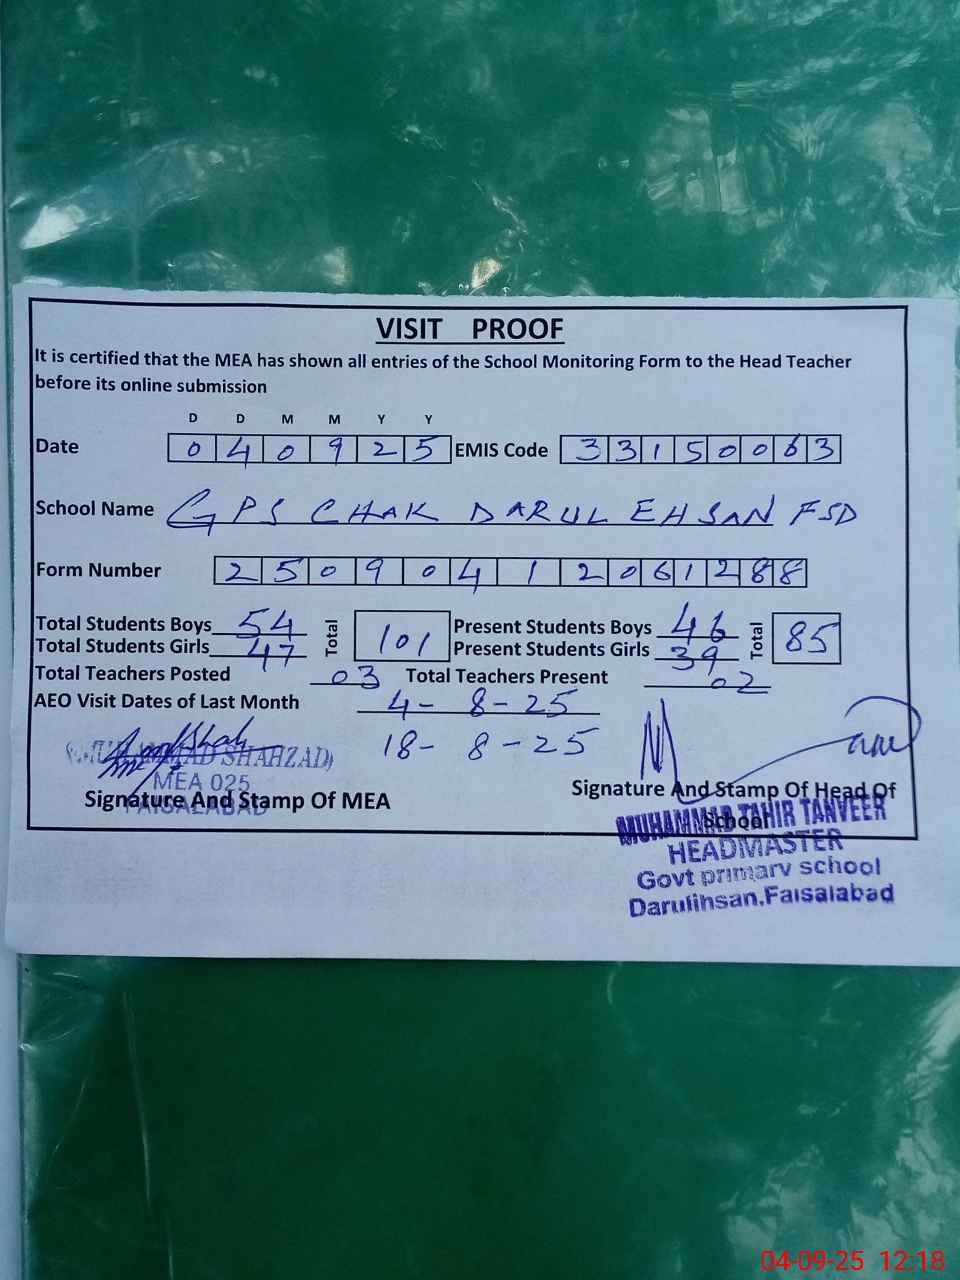 VISIT PROOF
It is certified that the MEA has shown all entries of the School Monitoring Form to the Head Teacher
before its online submission
D D M M Y Y
Date 0 4 0 9 2 5 EMIS Code 3 3 1 5 0 0 6 3
School Name GPS CHAK DARUL EHSAN FSD
Form Number 2 5 0 9 0 4 1 2 0 6 1 2 8 8
Total Students Boys 54 Total 101 Present Students Boys 46 Total 85
Total Students Girls 47 Present Students Girls 39
Total Teachers Posted 03 Total Teachers Present 02
AEO Visit Dates of Last Month 4-8-25
18-8-25
(MUHAMMAD SHAHZAD)
MEA 025
FAISALABAD
Signature And Stamp Of MEA
Signature And Stamp Of Head Of
School
MUHAMMAD TAHIR TANVEER
HEADMASTER
Govt primary school
Darulihsan,Faisalabad
04-09-25 12:18